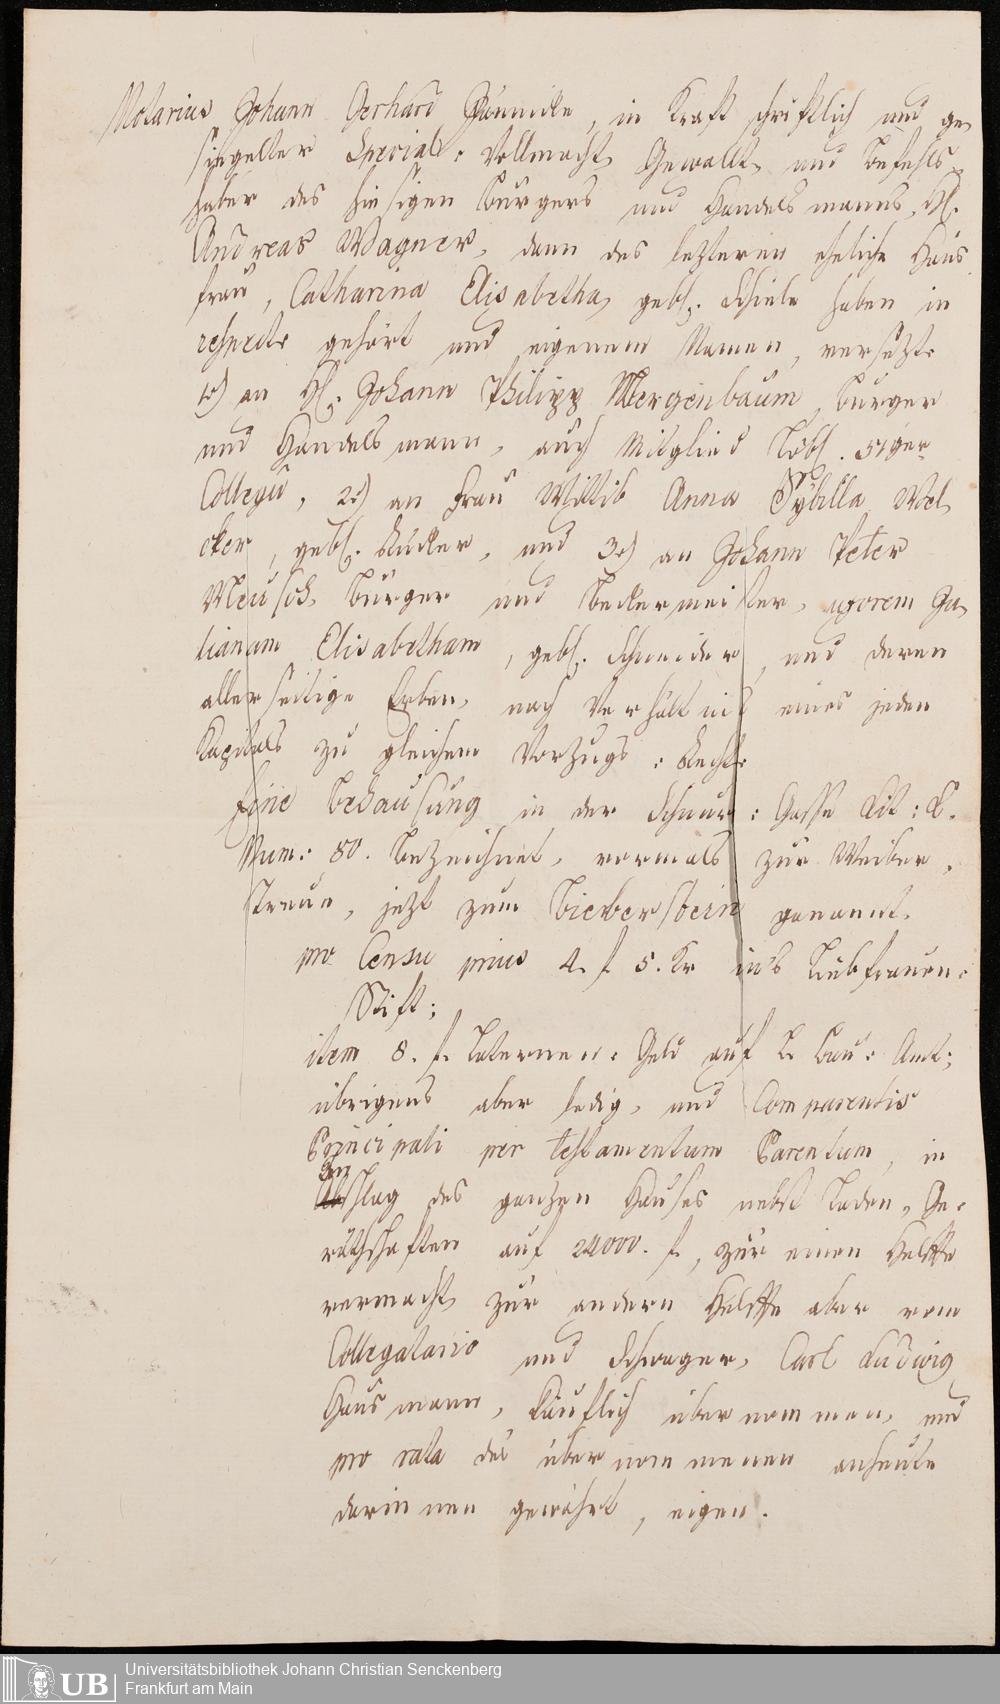 Notarius Johann Gerhard Jännicke, in Kraft schriftlich und ge¬
siegelter Special: Vollmacht, Gewalt¬ und Befehls¬
haber des hiesigen Burgers und Handelsmanns, H.
Andreas Wagner, dann des letzteren eheliche Haus
frau, Catharina Elisabetha, gebh. Schiele haben in
respecte gehört und eigenem Namen, versetzt
1.) an H. Johann Philipp Mergenbaum, Burger
und Handelsmann, auch Mitglied Löbl. 51ger
Collegii, 2.) an Frau Wittib Anna Sÿbilla Wel
cker, gebh. Rücker, und 3.) an Johann Peter
Meusch, Burger und Beckermeister, uxorem Ju¬
lianam Elisabetham, gebh. Schneider, und deren
allerseitige Erben, nach Verhältniß eines jeden
Kapitals zu gleichem Vorzugs: Recht:
Eine Behausung in der Schnur: Gasse Lit: L.
Num: 80. bezeichnet, vormals zur Weiber,
treue, jetzt zum Bieberstein genannt.
pro Censu prius 4. f 5. Kr in's Liebfrauen¬
Stift;
item 8. f. Laternen: Geld auf L. Bau: Amt;
übrigens aber ledig, und Comparentis
Principali per testamentum Parentum, in
An
schlag des ganzen Hauses nebst Laden, Ge¬
räthschaften auf 24000. f., zur einen Helffte
vermacht, zur andern Helffte aber vom
Collegatario und Schwager, Carl Ludwig
Hausmann, käuflich übernommen, und
pro rata des übernommenen anheute
darinnen gewährt, eigen.
Universitätsbibliothek Johann Christian Senckenberg
Frankfurt am Main
UB